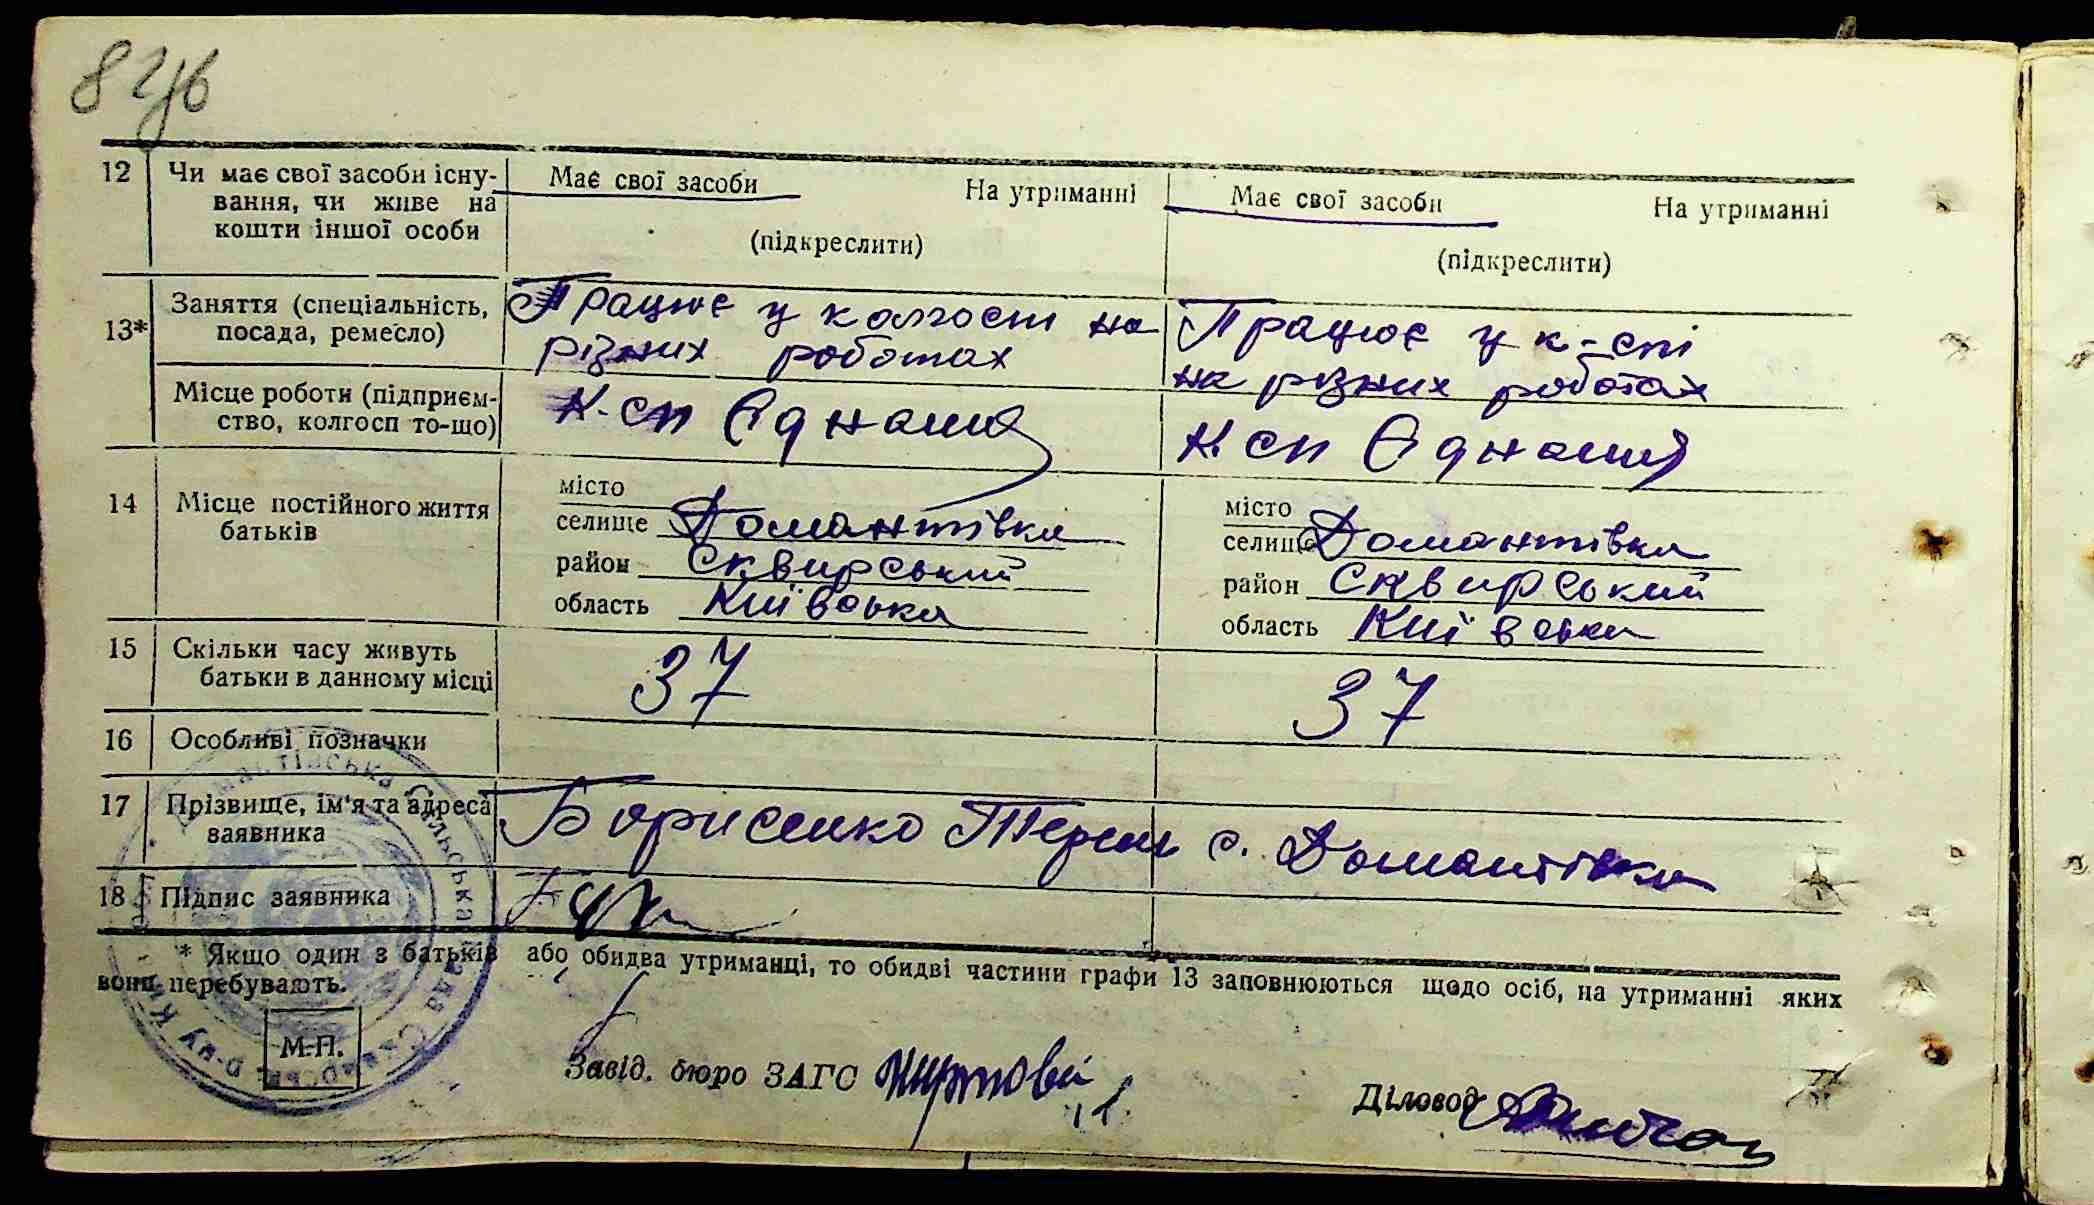 8 зв
12 Чи має свої засоби існу- Має свої засоби На утриманні Має свої засоби На утриманні
вання, чи живе на
кошти іншої особи (підкреслити) (підкреслити)
13* Заняття (спеціальність, Працює у колгоспі на Працює у к-спі
посада, ремесло) різних роботах на різних роботах
Місце роботи (підприєм- К-сп Єднання К-сп Єднання
ство, колгосп то-що)
14 Місце постійного життя місто місто
батьків селище Домантівка селище Домантівка
район Сквирський район Сквирський
область Київська область Київська
15 Скільки часу живуть 37 37
батьки в данному місці
16 Особливі позначки
17 Прізвище, ім'я та адреса Борисенко с. Домантівка
заявника
18 Підпис заявника
* Якщо один з батьків або обидва утриманці, то обидві частини графи 13 заповнюються щодо осіб, на утриманні яких
вони перебувають.
М.П.
Завід. бюро ЗАГС
Діловод